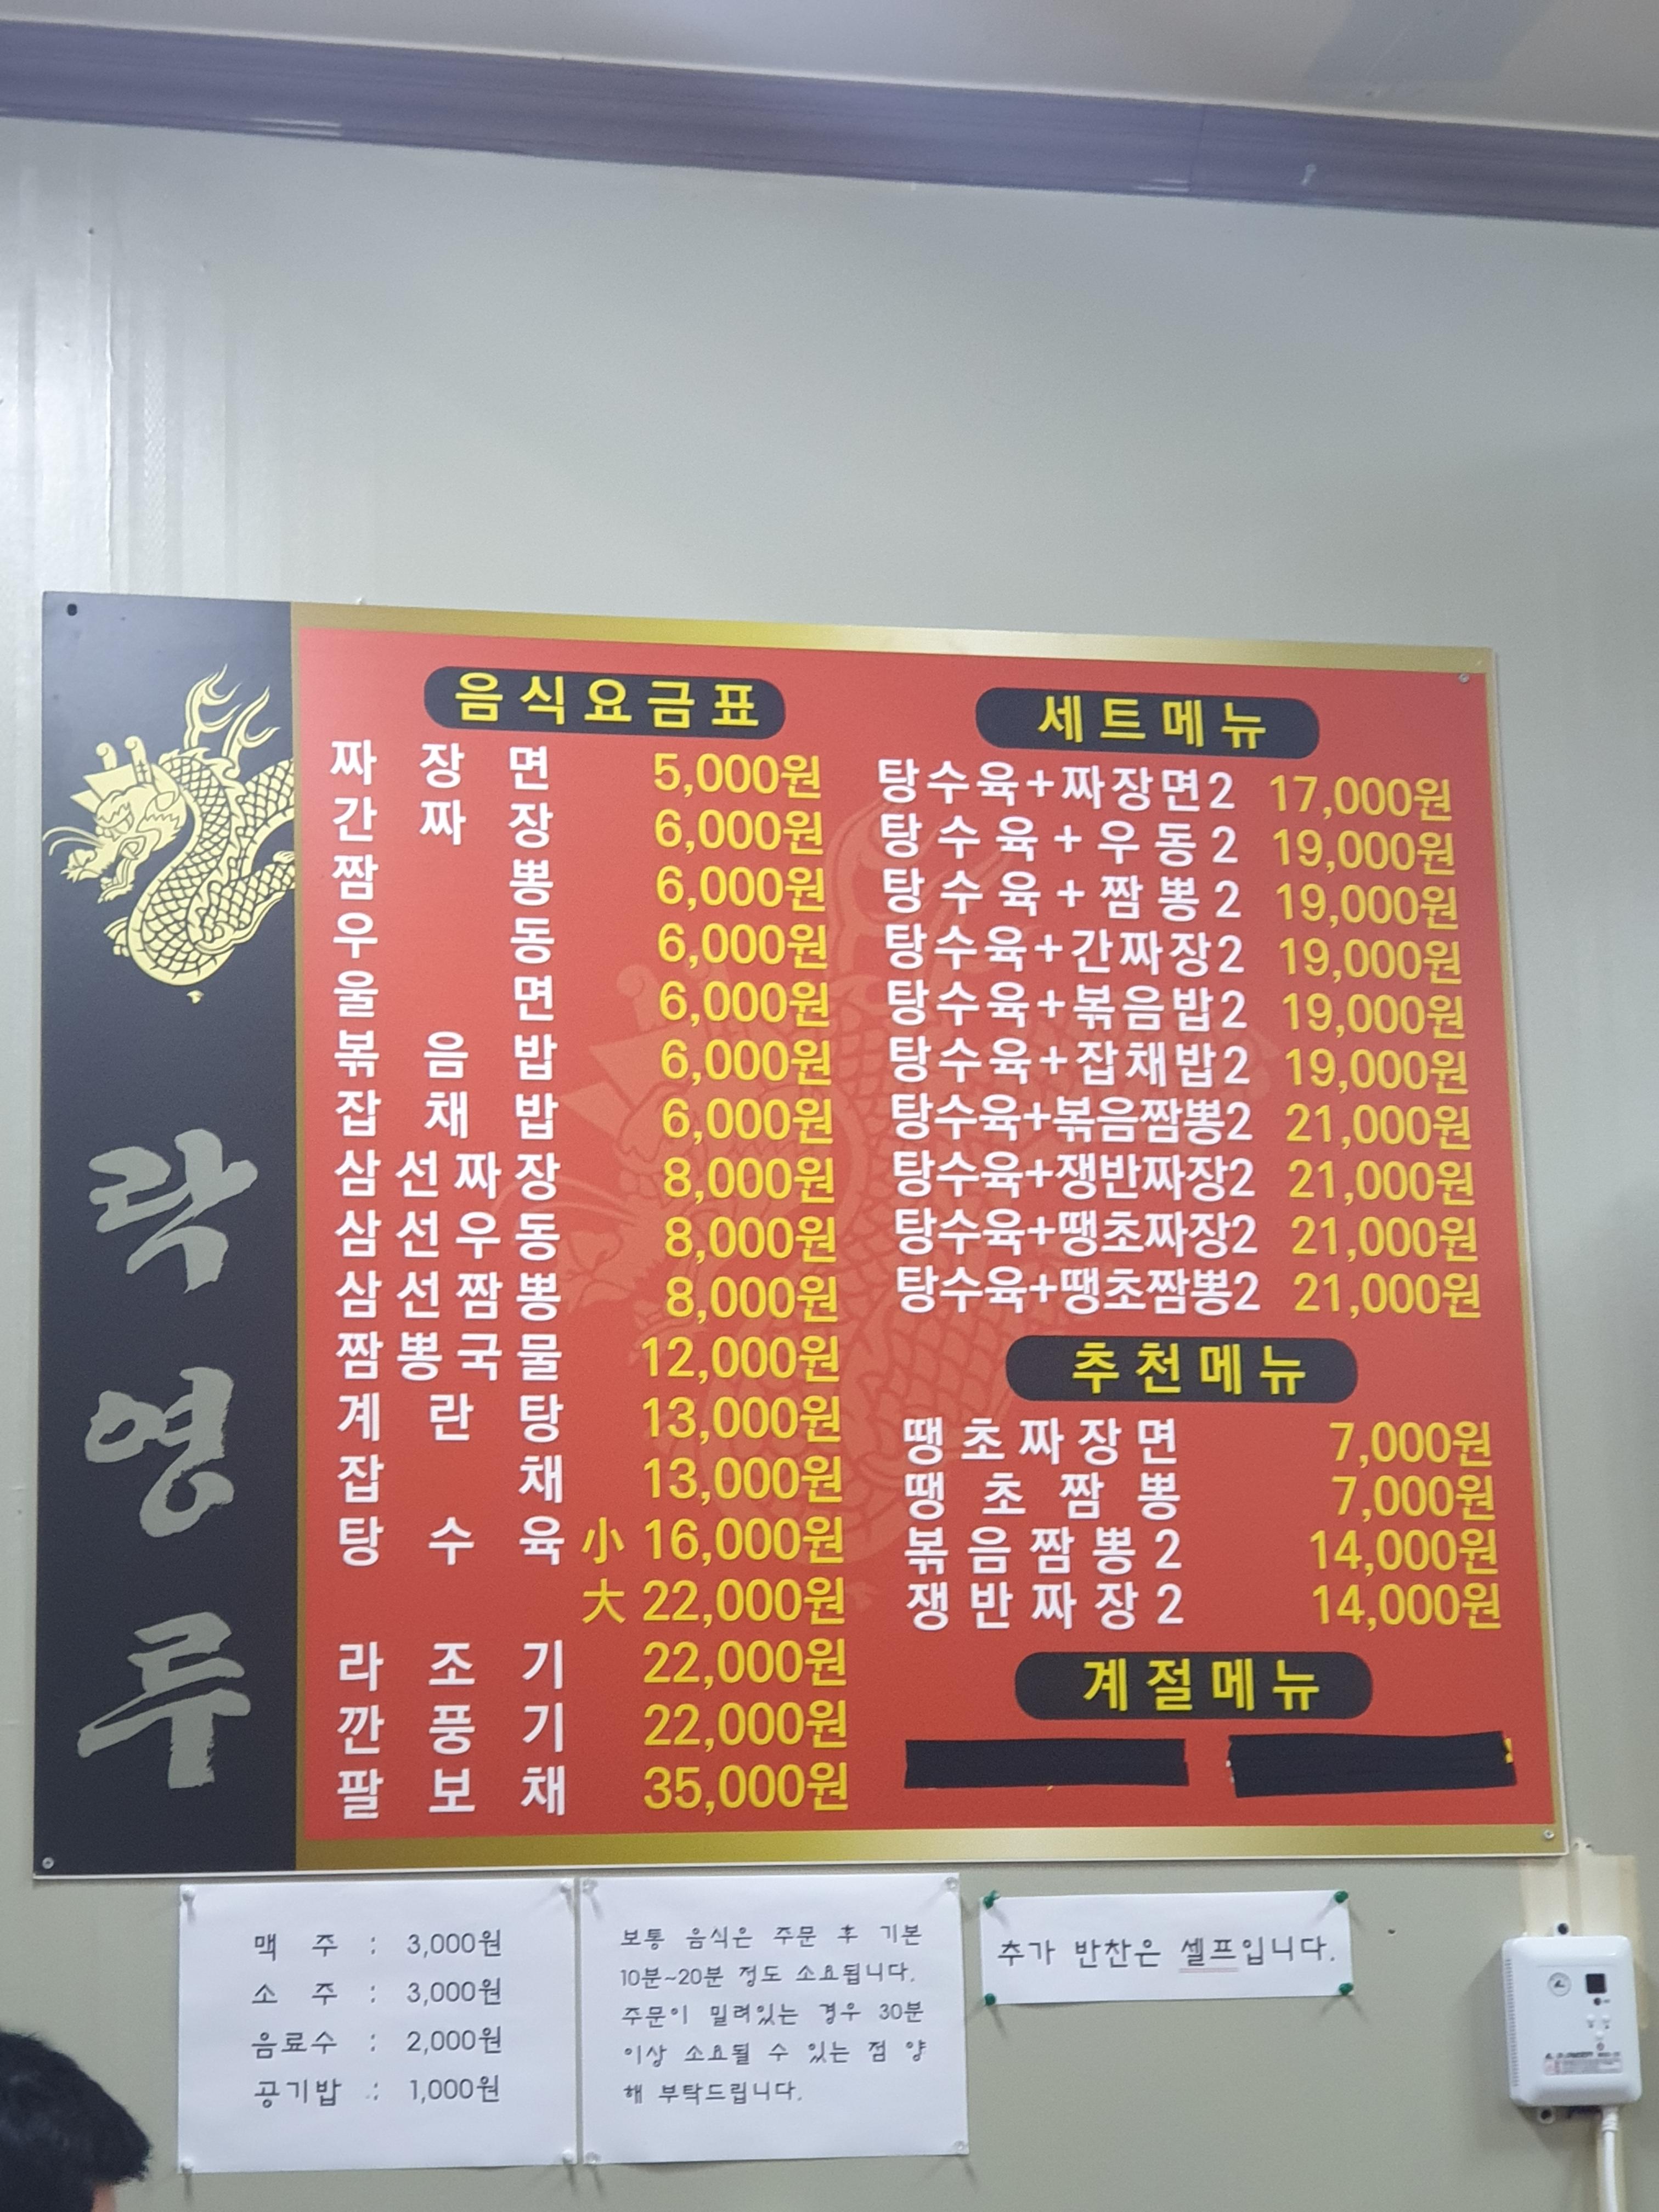 락영루
음식요금표
짜장면 5,000원
간짜장 6,000원
짬뽕 6,000원
우동 6,000원
울면 6,000원
볶음밥 6,000원
잡채밥 6,000원
삼선짜장 8,000원
삼선우동 8,000원
삼선짬뽕 8,000원
짬뽕국물 12,000원
계란탕 13,000원
잡채 13,000원
탕수육 小 16,000원
大 22,000원
라조기 22,000원
깐풍기 22,000원
팔보채 35,000원
세트메뉴
탕수육+짜장면2 17,000원
탕수육+우동2 19,000원
탕수육+짬뽕2 19,000원
탕수육+간짜장2 19,000원
탕수육+볶음밥2 19,000원
탕수육+잡채밥2 19,000원
탕수육+볶음짬뽕2 21,000원
탕수육+쟁반짜장2 21,000원
탕수육+땡초짜장2 21,000원
탕수육+땡초짬뽕2 21,000원
추천메뉴
땡초짜장면 7,000원
땡초짬뽕 7,000원
볶음짬뽕2 14,000원
쟁반짜장2 14,000원
계절메뉴
맥주 : 3,000원
소주 : 3,000원
음료수 : 2,000원
공기밥 : 1,000원
보통 음식은 주문 후 기본
10분~20분 정도 소요됩니다.
주문이 밀려있는 경우 30분
이상 소요될 수 있는 점 양
해 부탁드립니다.
추가 반찬은 셀프입니다.